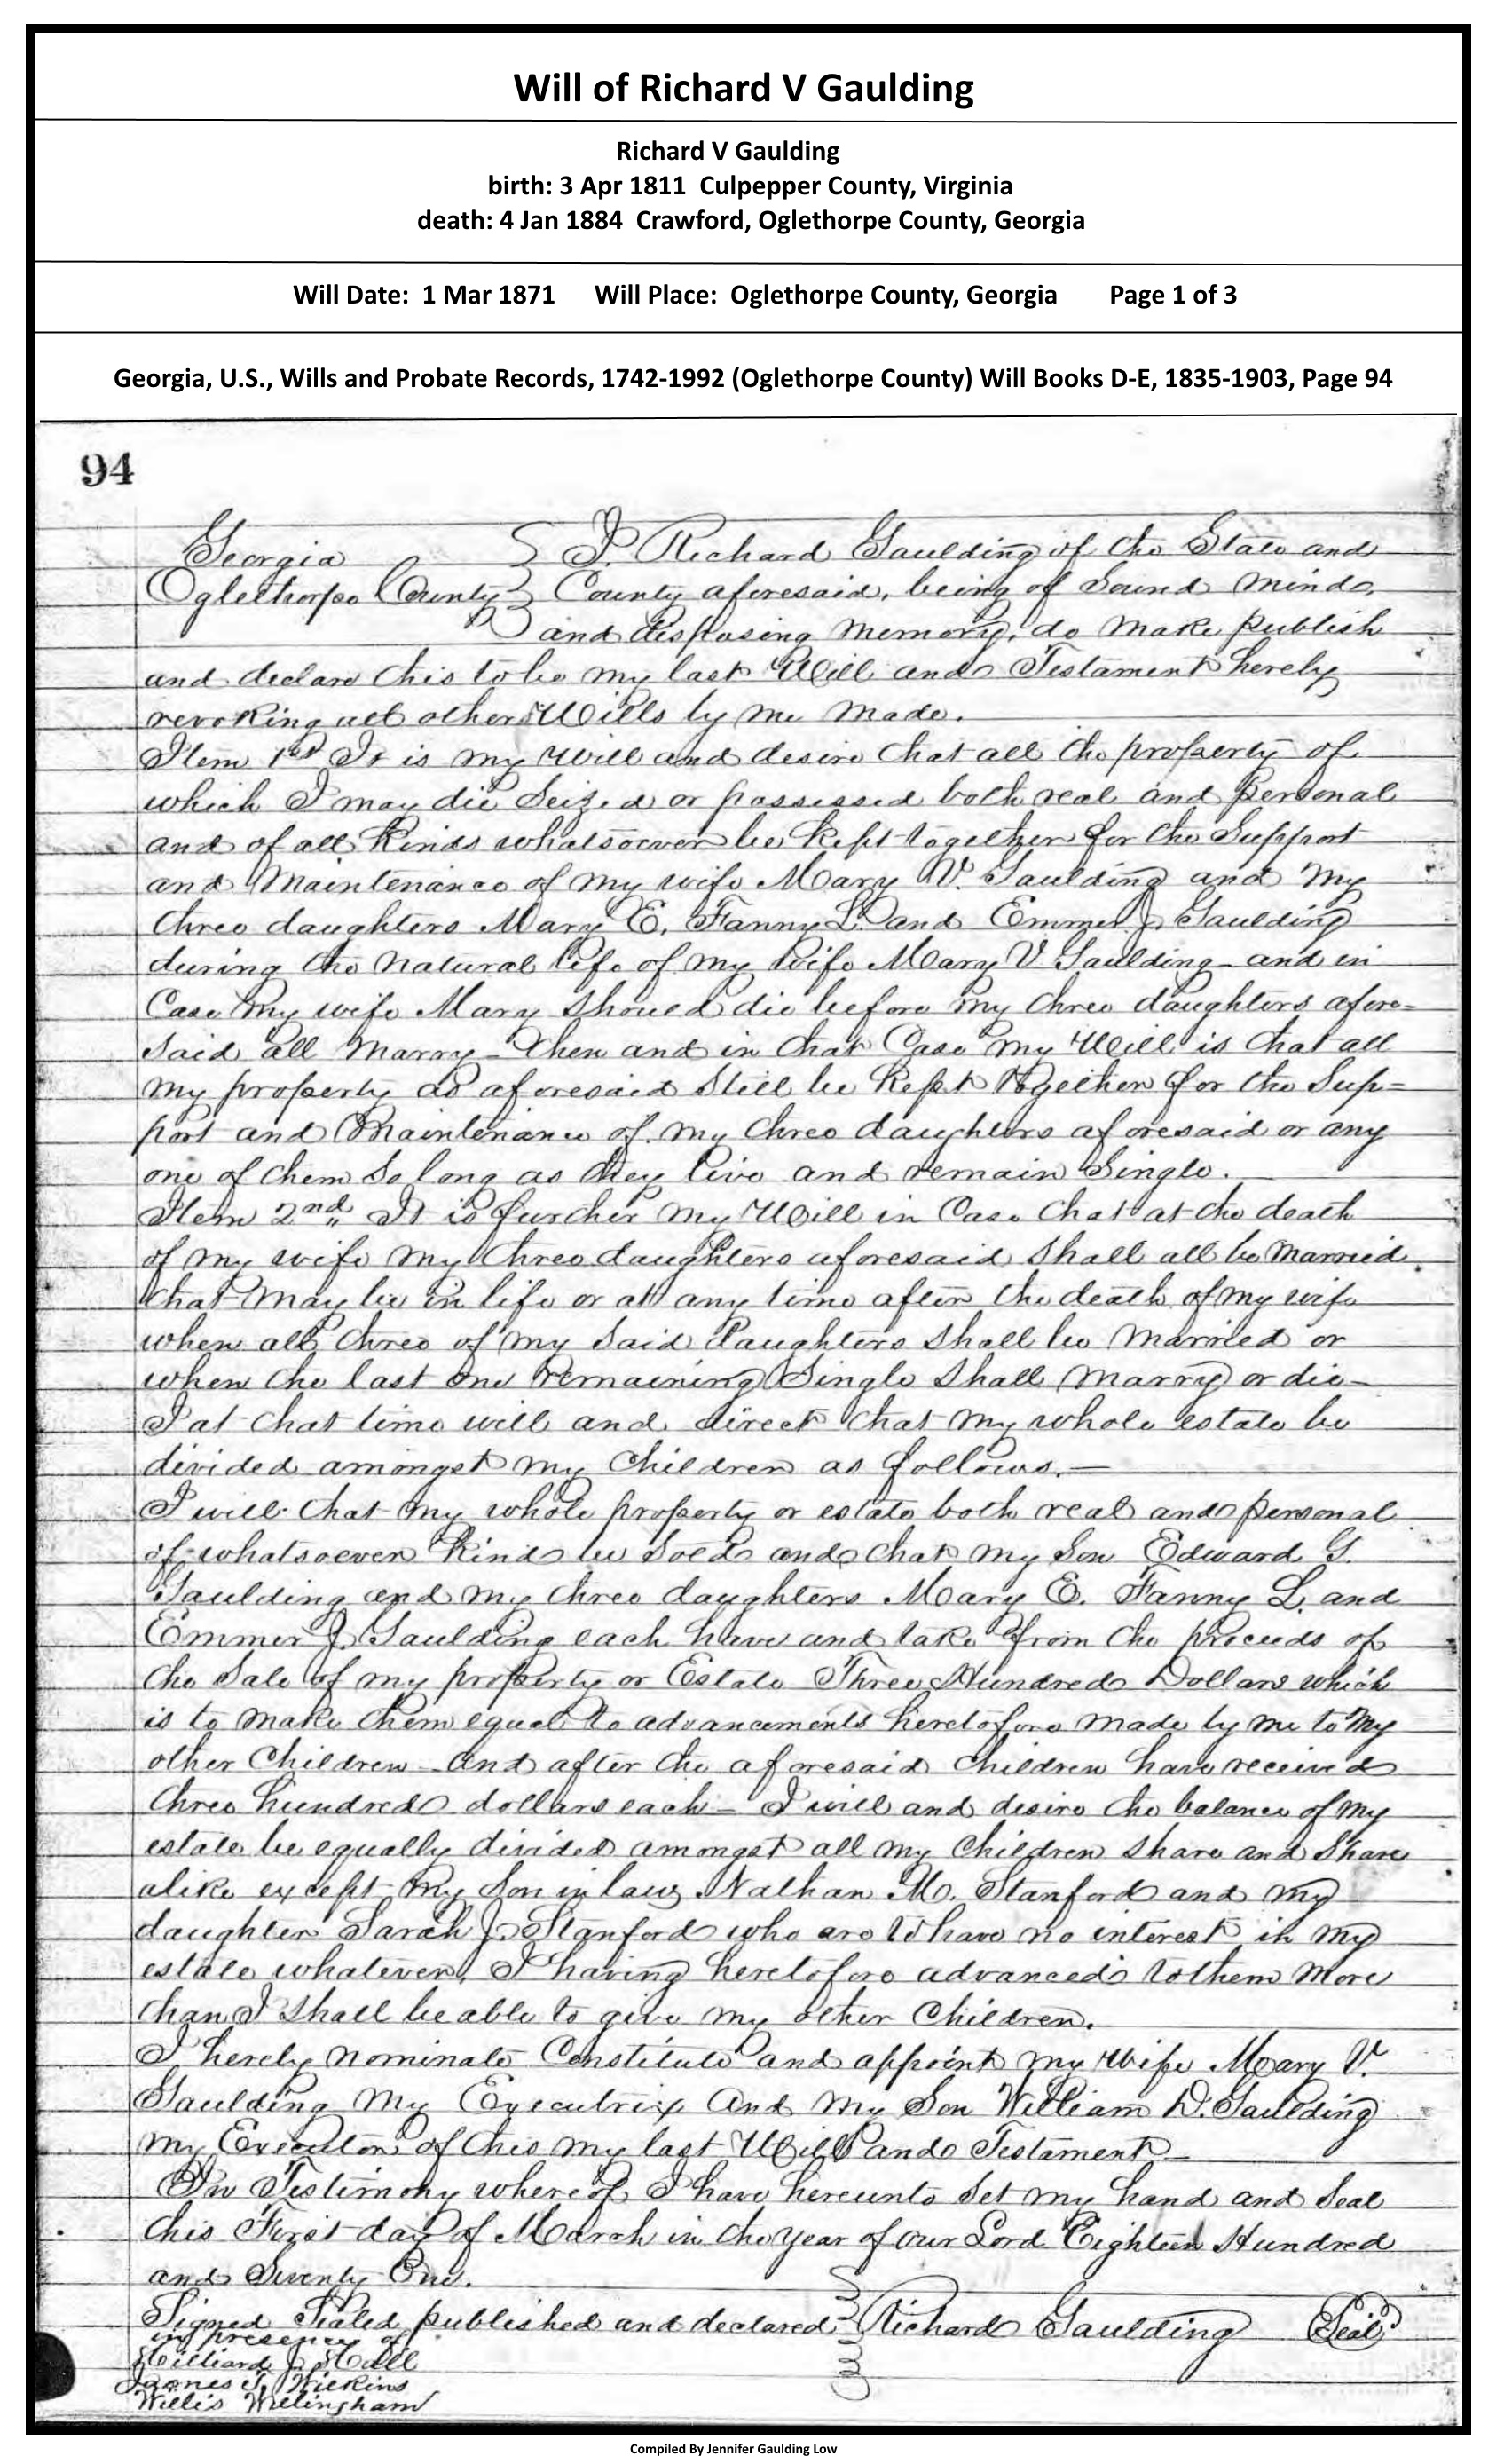 Will of Richard V Gaulding
Richard V Gaulding
birth: 3 Apr 1811 Culpepper County, Virginia
death: 4 Jan 1884 Crawford, Oglethorpe County, Georgia
Will Date: 1 Mar 1871 Will Place: Oglethorpe County, Georgia Page 1 of 3
Georgia, U.S., Wills and Probate Records, 1742-1992 (Oglethorpe County) Will Books D-E, 1835-1903, Page 94
94
Georgia I, Richard Gaulding of the State and
Oglethorpe County County aforesaid, being of Sound mind,
and disposing memory, do make publish
and declare this to be my last Will and Testament hereby
revoking all other Wills by me made.
Item 1st It is my will and desire that all the property of
which I may die Seized or possessed both real and personal
and of all kinds whatsoever be kept together for the Support
and Maintenance of my wife Mary V. Gaulding and my
three daughters Mary E, Fanny L. and Emmer J. Gaulding
during the natural life of my wife Mary V Gaulding and in
Case my wife Mary should die before my three daughters afore-
said all marry - then and in that Case my Will is that all
my property as aforesaid still be kept together for the Sup-
port and Maintenance of my three daughters aforesaid or any
one of them So long as they live and remain Single.
Item 2nd It is further my Will in Case that at the death
of my wife my three daughters aforesaid shall all be married
that may be in life or at any time after the death of my wife
when all three of my said daughters shall be married or
when the last one remaining Single shall marry or die -
I at that time will and direct that my whole estate be
divided amongst my Children as follows. —
I will that my whole property or estate both real and personal
of whatsoever kind be sold and that my Son Edward G.
Gaulding and my three daughters Mary E. Fanny L. and
Emmer J. Gaulding each have and take from the proceeds of
the Sale of my property or Estate Three Hundred Dollars which
is to make them equal to advancements heretofore made by me to my
other Children - and after the aforesaid Children have received
three hundred dollars each - I will and desire the balance of my
estate be equally divided amongst all my Children share and share
alike except my Son in law Nathan M. Stanford and my
daughter Sarah J. Stanford who are to have no interest in my
estate whatever, I having heretofore advanced to them more
than I shall be able to give my other Children.
I hereby nominate Constitute and appoint my wife Mary V.
Gaulding my Executrix and my Son William D. Gaulding
my Executor of this my last Will and Testament
In Testimony whereof I have hereunto Set my hand and Seal
this First day of March in the year of our Lord Eighteen Hundred
and Seventy One.
Signed Sealed published and declared Richard Gaulding Seal
in presence of
Hilliard J. Hall
James T. Wilkins
Willis Willingham
Compiled By Jennifer Gaulding Low